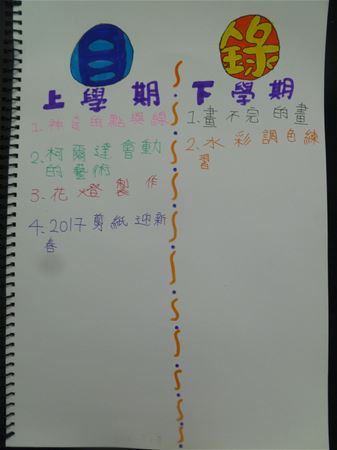 目錄
上學期
1.神奇的點與線
2.柯爾達會動
的藝術
3.花燈製作
4.2017剪紙迎新
春
下學期
1.畫不完的畫
2.水彩調色練
習